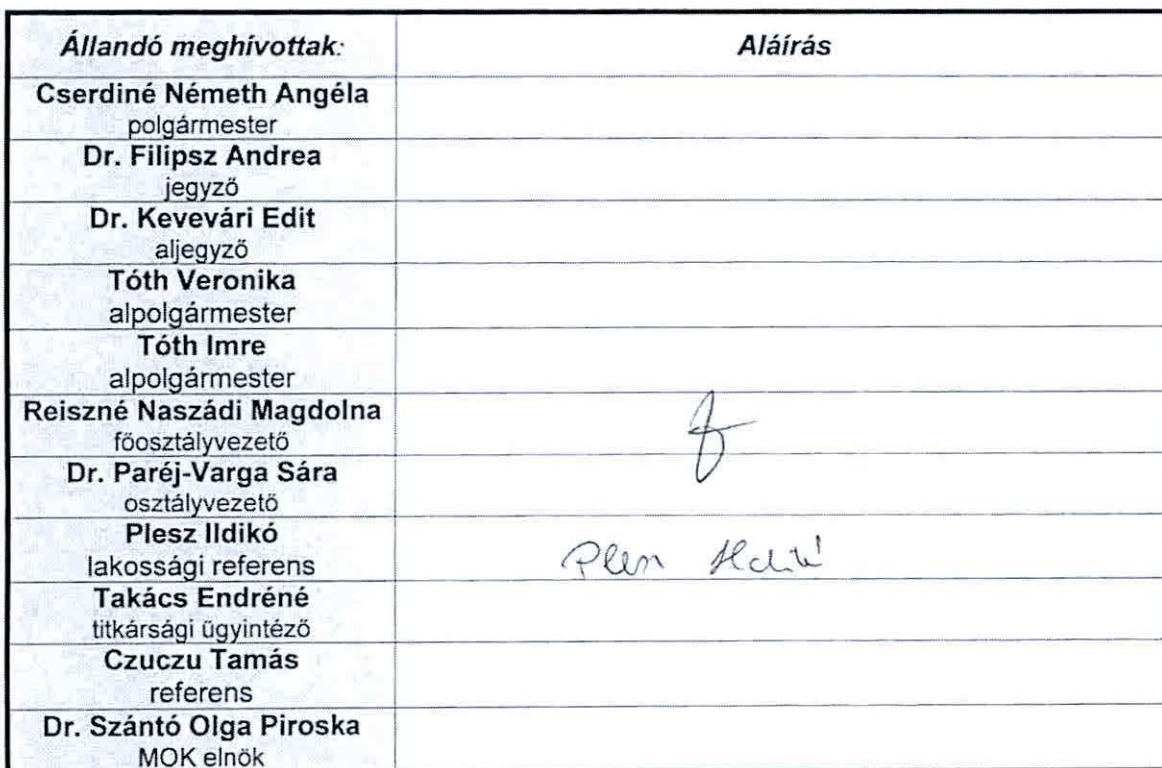 Állandó meghívottak: Aláírás
Cserdiné Németh Angéla
polgármester
Dr. Filipsz Andrea
jegyző
Dr. Kevevári Edit
aljegyző
Tóth Veronika
alpolgármester
Tóth Imre
alpolgármester
Reiszné Naszádi Magdolna
főosztályvezető
Dr. Paréj-Varga Sára
osztályvezető
Plesz Ildikó
lakossági referens
Plesz Ildikó
Takács Endréné
titkársági ügyintéző
Czuczu Tamás
referens
Dr. Szántó Olga Piroska
MOK elnök